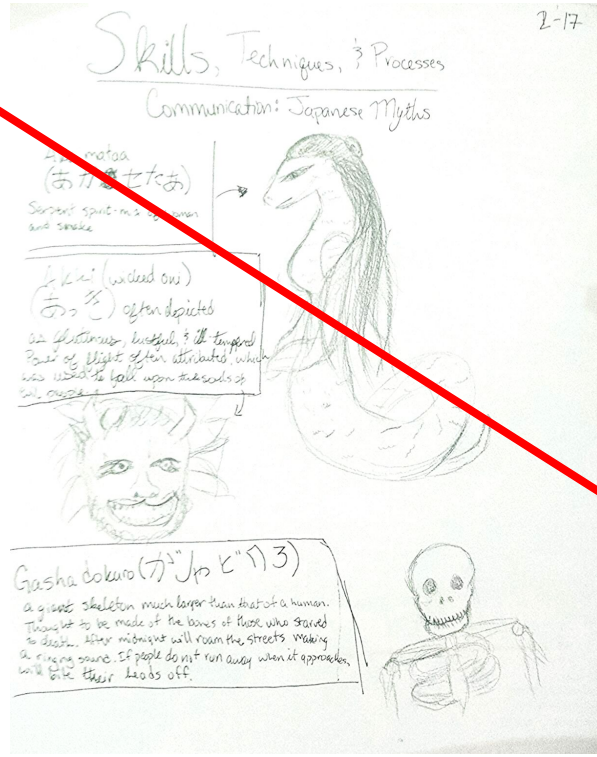 2-17
Skills, Techniques, & Processes
Communication: Japanese Myths
mataa
(あか セたあ)
Serpent spirit-mix of women
and snake
Akki (wicked oni)
often depicted
as glutinous, lustful, & ill-tempered
Power of flight often attributed, which
was used to fall upon the souls of
evil
Gashadokuro
a giant skeleton much larger than that of a human.
Thought to be made of the bones of those who starved
to death. After midnight will roam the streets making
a ringing sound. If people do not run away when it approaches,
will bite their heads off.